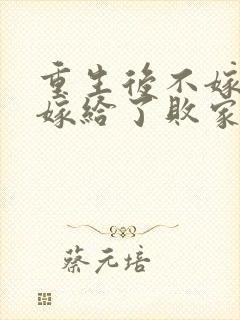 重生後不嫁
嫁給了敗家
蔡元培